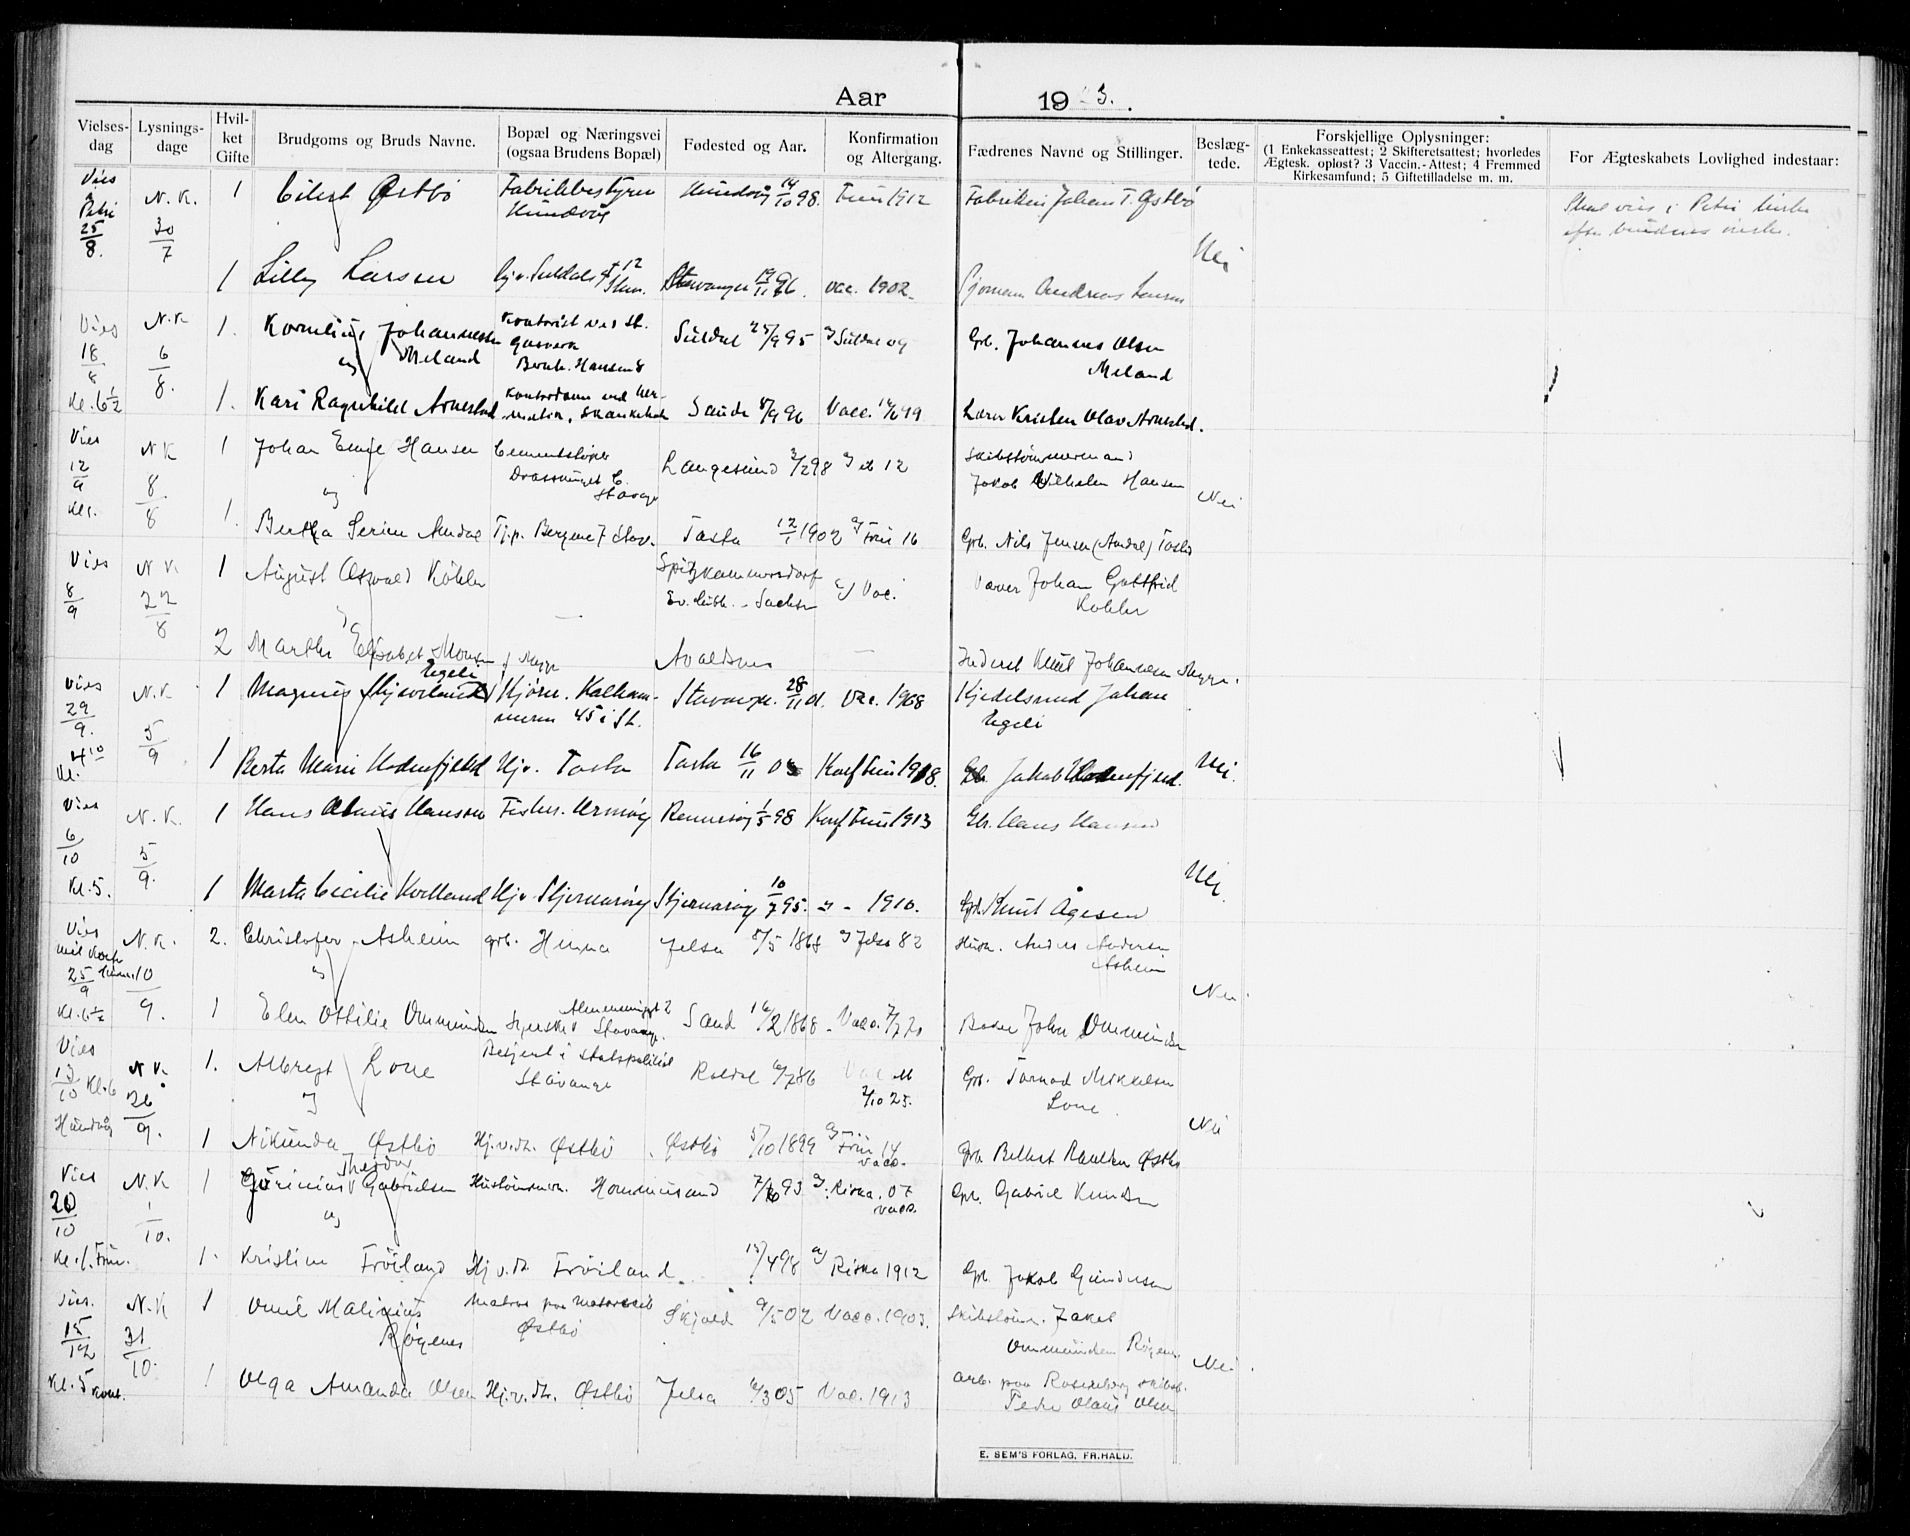 Aar 19 3.
Vielses-dag
Lysnings-dage
Hvil-ket Gifte
Brudgoms og Bruds Navne.
Bopæl og Næringsvei (ogsaa Brudens Bopæl)
Fødested og Aar.
Konfirmation og Altergang.
Fædrenes Navne og Stillinger.
Beslæg-tede.
Forskjellige Oplysninger:
(1 Enkekasseattest; 2 Skifteretsattest; hvorledes
Ægtesk. opløst? 3 Vaccin.-Attest; 4 Fremmed
Kirkesamfund; 5 Giftetilladelse m. m.
For Ægteskabets Lovlighed indestaar:
Vies i Petri 25/8. N. K. 30/7 1 Eilert Østbø Fabrikbestyrer Hundvåg Hundvåg 14/10 98. Frue 1912 Fabrikeier Johan T. Østbø
Skal vies i Petri kirke
efter brudens ønske.
Nei
1 Lilly Larsen Hjv. Suldals gt 12 Stav. Stavanger 19/11 96. vac. 1902. Sjømann Andreas Larsen
Vies 18/8 Kl. 6½ N. K 6/8. 1. Kornelius Johannesen Meland Kontorist ved St. Gasverk Bernh. Hansens Suldal 25/9 95 Suldal 09 Grb. Johannes Olsen Meland
og
1. Kari Ragnhild Arnestad Sande 8/9 96 Vacc. 14/6 99 Lærer Kristen Olav Arnestad.
Vies 12/9 N K 8/8 1 Johan Emil Hansen Langesund 3/2 98 12 Skibstømmermand Jakob Vilhelm Hansen
og
Nei
1. Bertha Serine Andal Tj.p. Bergene 7 Stav. Tasta 12/1 1902 Frue 16 Grb. Nils Jensen (Andal) Tasta
Vies 8/9 N K. 22/8 1 August Oswald Köhler Spitzkunnersdorf Ev. luth. - Sachsen Vac. Væver Johan Gottfried Kohler
2 Martha Elisabet Monsen Avaldsnes Inderst Knut Johannesen Mygge.
Vies 29/9. Kl. 4 10 N. K 5/9 1 Magnus Skjæveland Egeli Kalhammeren 45 i St. Stavanger. 28/11 01. Vac. 1908 Kjedelsmed Johan Egeli
Nei.
1 Berta Marie Hodnefjeld Hjv. Tasta Tasta 16/11 03 Konf Frue 1918. Gbr. Jakob Hodnefjeld.
Vies 6/10 Kl. 5. N. K. 5/9. 1 Hans Olaus Hansen Fisker. Usmøy Rennesøy 1/5 98 Konf Frue 1913 Gbr. Hans Hansen
Nei.
1 Marta Cecilie Kvitland Hjv. Skjernarøy Skjernarøy 10/7 95. 1910. Gbr. Knut Ågesen
Vies 25/9 Kl. 6½ N. K. 10/9. 2. Christofer Asheim grb. Hinna Jelsa 8/5 1868 Jelsa 82 Husm. Anders Andersen Asheim
og
Nei.
1 Elen Ottilie Ommundsen Syerske Stavanger. Sand 16/2 1868 Vacc. 7/7 70 John Ommundsen
Vies 13/10 Kl. 6 Hundvåg N K. 26/9. 1. Albregt Lone Betjent i Statspolitiet Stavanger Røldal 6/7 86 Vac 2/10 25. Grb. Tormod Mikkelsen Lone.
og
Nei
1 Nikunda Østbø Hj.v.dh. Østbø Østbø 5/10 1899 Frue 14 vacc. Grb. Østbø
Vies 20/10 Kl. 1. Frue. N. K 1/10. 1 Gørinius Theodor Gabrielsen Hustømmerm. Hommersand 7/10 93 Riska. 07 vacc. Grb. Gabriel Knudsen
og
1. Kristine Frøiland Hj v. dh. Frøiland 15/4 98 Riska 1912 Grb. Jakob Gundersen
Vies. 15/12 Kl. 5 N. K 31/10. 1 Omil Malinius Røgenes Matros paa motorskib Østbø Skjold 9/5 02 Vacc. 1903. Skibstøm. Jakob Ommundsen Røgenes
Nei.
1 Olga Amanda Olsen Hj.v.dh. Østbø Jelsa 6/3 05 Vac. 1913 Arb. paa Rosenberg skibsb. Peder Olaus Olsen
E. SEM'S FORLAG, FR.HALD.